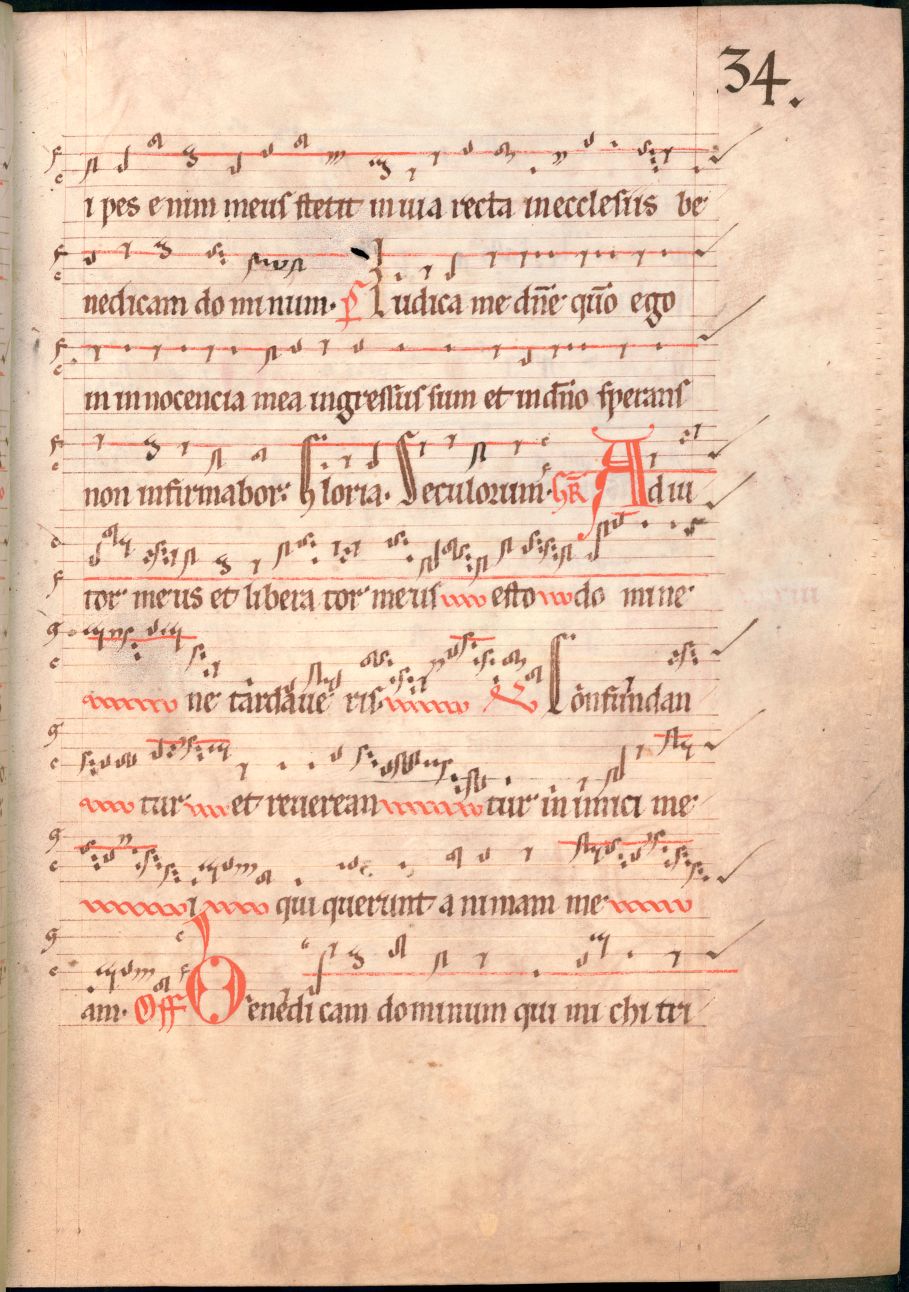 34.
i pes enim meus stetit in uia recta in ecclesiis be
nedicam do mi num. Ps Iudica me dn̄e qūo ego
in innocencia mea ingressus sum et in dn̄o sperans
non infirmabor. Gloria. Seculorum. Gr̄ Adiu
tor meus et libera tor meus esto do mine
ne tardaue ris V Confundan
tur et reuerean tur in imici me
i qui querunt animam me
am. Off Benedi cam dominum qui mi chi tri